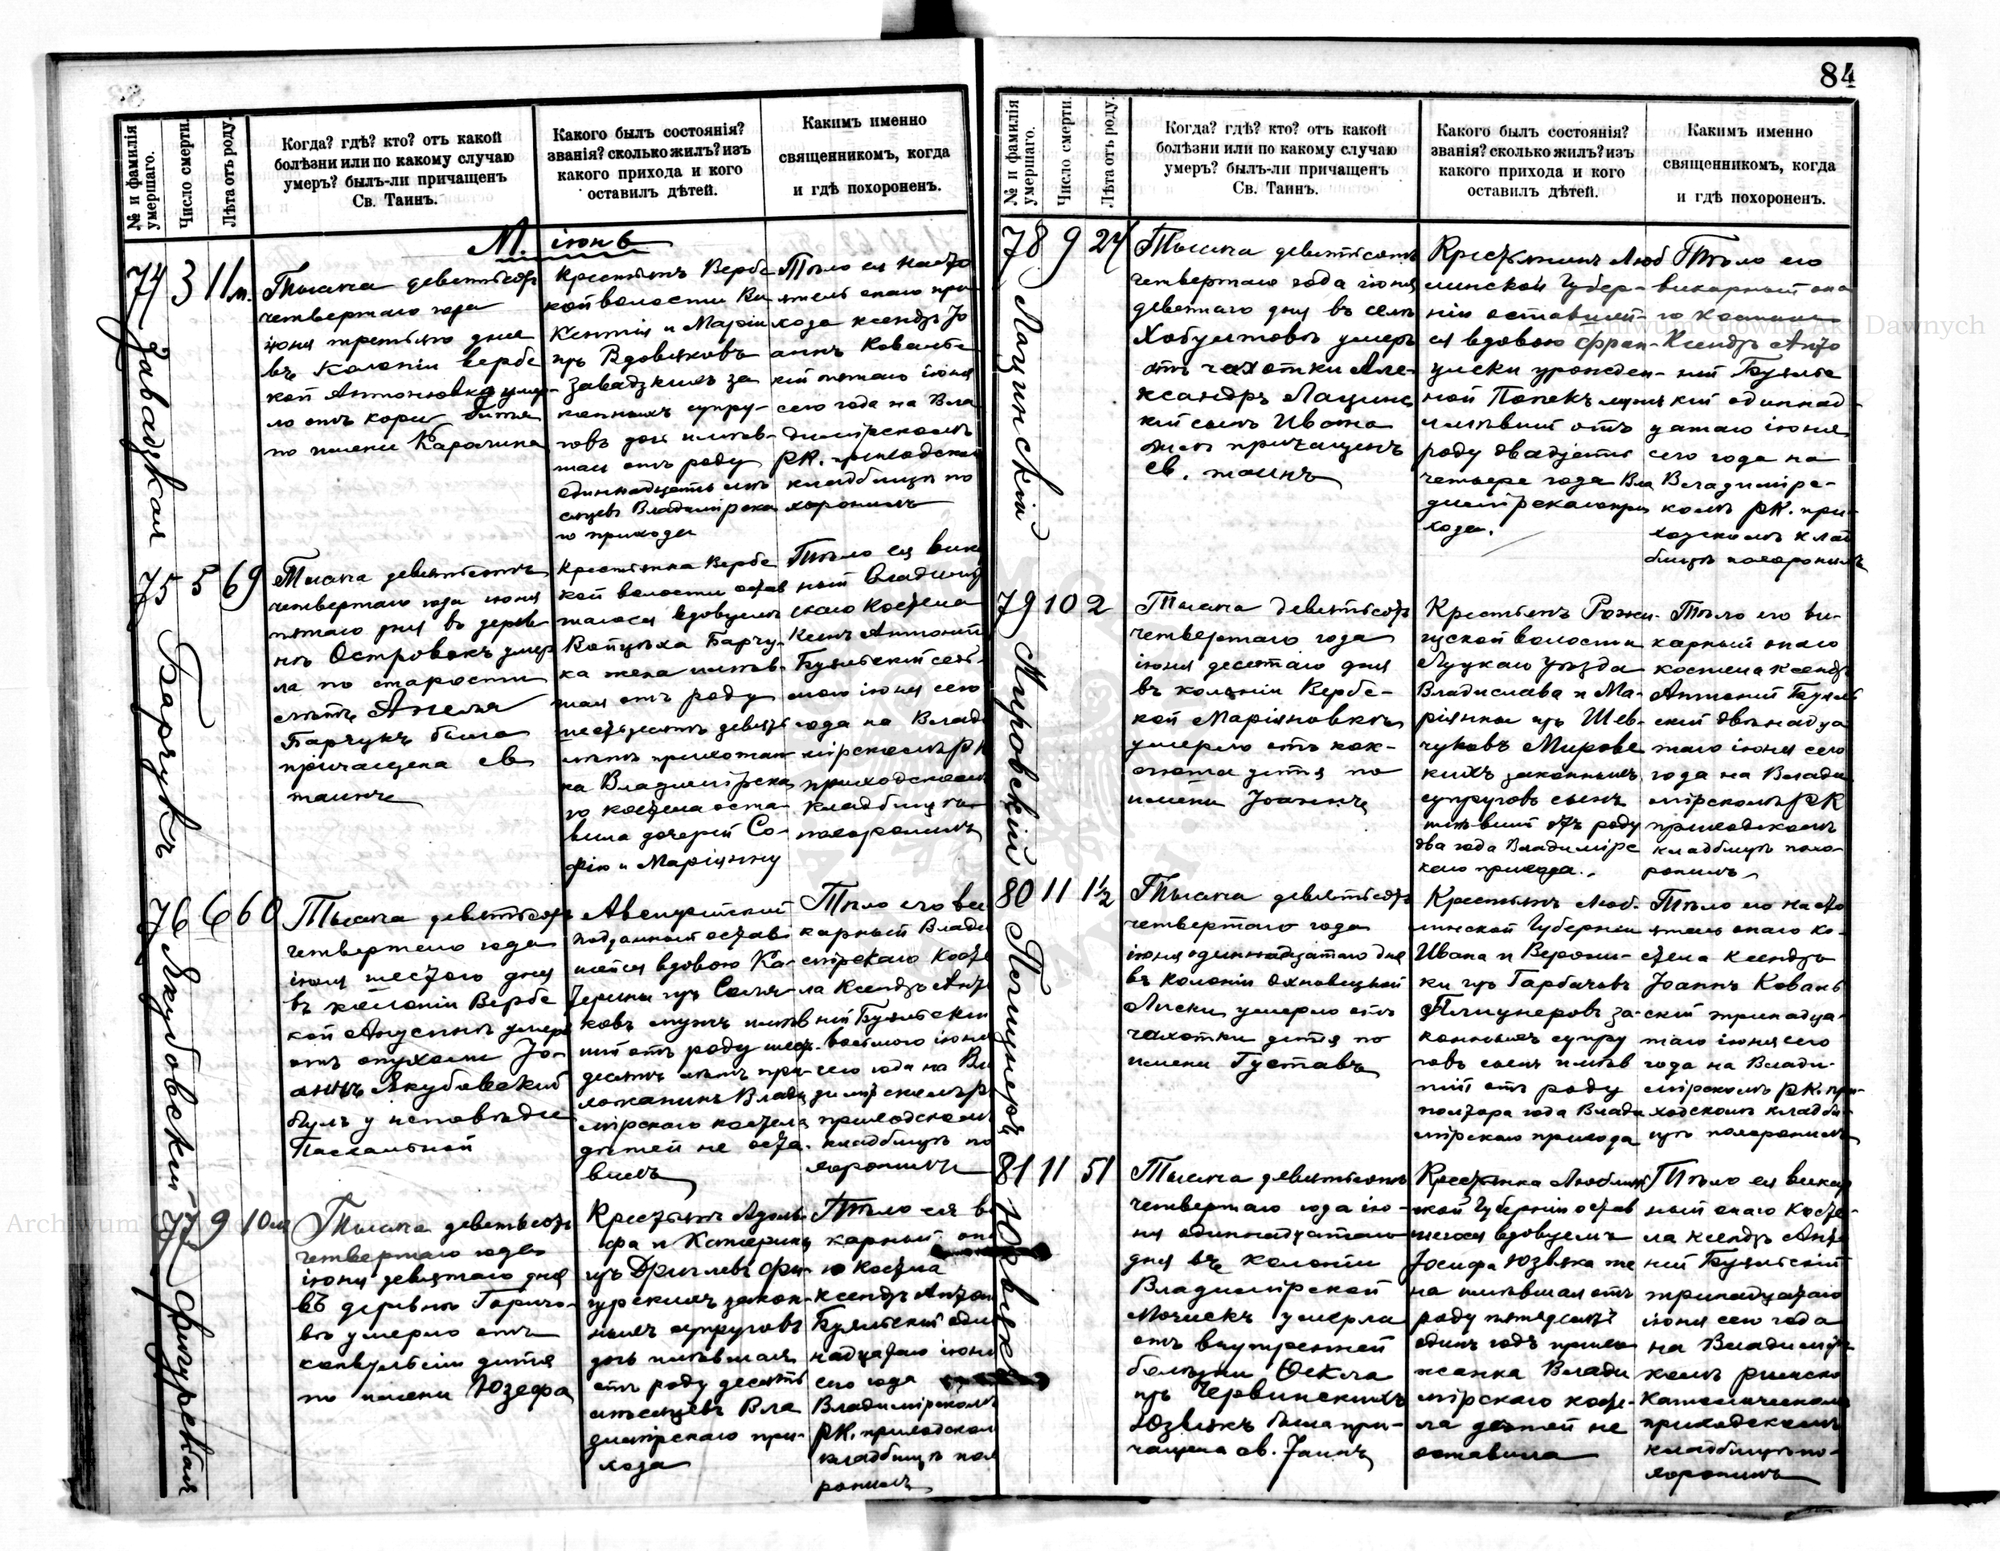 84
№ и фамилія умершаго.
Число смерти.
Лѣта отъ роду.
Когда? гдѣ? кто? отъ какой
болѣзни или по какому случаю
умеръ? былъ-ли причащенъ
Св. Таинъ.
Какого былъ состоянія?
званія? сколько жилъ? изъ
какого прихода и кого
оставилъ дѣтей.
Какимъ именно
священникомъ, когда
и гдѣ похороненъ.
М. іюнь
74 Завадзкая
3
11 м.
Тысяча девятьсотъ
четвертаго года
іюня третьяго дня
въ Колоніи Вербс
кой Антоновкѣ умер
ло отъ кори дитя
по имени Каролина
Крестьянъ Вербс
кой волости Ви
кентія и Маріи
изъ Вдовяковъ
Завадзкихъ за
конныхъ супру-
говъ дочь имѣв-
шая отъ роду
одиннадцать мѣ
сяцевъ Владимірска
го прихода
Тѣло ея насто
ятель онаго при
хода ксендзъ Іо
аннъ Коваль
скій пятаго іюня
сего года на Вла
димірскомъ
РК. приходском
кладбищѣ по
хоронилъ
75 Барчукъ
5
69
Тысяча девятьсотъ
четвертаго года іюня
пятаго дня въ дерев
нѣ Островокъ умер
ла по старости
лѣтъ Анеля
Барчукъ была
причащена св
таинъ
Крестьянка Вербс
кой волости остав
шагося вдовцемъ
Войцѣха Барчу-
ка жена имѣв-
шая отъ роду
шестьдесятъ девять
лѣтъ прихожан
ка Владимірска
го костела оста
вила дочерей Со-
фію и Маріянну
Тѣло ея вика
ный Владимір
скаго Костела
Ксенз Антоній
Буяльскій седь-
мого іюня сего
года на Влади
мірскомъ РК
приходскомъ
кладбищѣ
похоронилъ
76 Якубовскій
6
60
Тысяча девятьсотъ
четвертаго года
іюня шестого дня
въ колоніи Вербс
кой умеръ
отъ опухоли Іо-
аннъ Якубовскій
былъ у исповѣди
Пасхальной
Австрійскій
подданный остав
шейся вдовою Ка-
терины изъ
ковъ мужъ имѣв
шій отъ роду шест
десятъ лѣтъ при-
хожанинъ Влади
мірскаго костела
дѣтей не оста
вилъ
Тѣло его ви
карный Влади
мірскаго Косте
ла Ксендзъ Анто
ній Буяльскій
восьмого іюня
сего года на Вл
димірскомъ Р
приходском
кладбищѣ по
хоронилъ
77 Фигурская
9
10 м
Тысяча девятьсотъ
четвертаго года
іюня девятаго дня
въ деревнѣ
умерло отъ
конвульсіи дитя
по имени Юзефа
Крестьянъ Адоль
фа и Катерины
изъ Фи-
гурскихъ закон-
ныхъ супруговъ
дочь имѣвшая
отъ роду десять
мѣсяцевъ Вла
димірскаго при-
хода
Тѣло ея ви
карный она
го костела
ксендзъ Антон
Буяльскій один
надцатаго іюня
сего года
Владимірскомъ
РК. приходском
кладбищѣ пох
ронилъ
№ и фамилія умершаго.
Число смерти.
Лѣта отъ роду.
Когда? гдѣ? кто? отъ какой
болѣзни или по какому случаю
умеръ? былъ-ли причащенъ
Св. Таинъ.
Какого былъ состоянія?
званія? сколько жилъ? изъ
какого прихода и кого
оставилъ дѣтей.
Какимъ именно
священникомъ, когда
и гдѣ похороненъ.
78 Лацинскій
9
24
Тысяча девятьсотъ
четвертаго года іюня
девятаго дня въ селѣ
Хобултовѣ умеръ
отъ чахотки Але-
ксандръ Лацинс
кій сынъ Ивана
былъ причащенъ
св. таинъ
Крестьянинъ Люб
линской Губер-
ніи оставшей-
ся вдовою Фран-
циски урожден-
ной Попекъ мужъ
имѣвшій отъ
роду двадцать
четыре года Вла
димірскаго при
хода.
Тѣло его
викарный она
го костела
Ксендзъ Анто
ній Буяльс
кій одиннад-
цатаго іюня
сего года на
Владимірс-
комъ РК. при-
ходскомъ клад
бищѣ похоронилъ
79 Мировскій
10
2
Тысяча девятьсотъ
четвертаго года
іюня десятаго дня
въ колоніи Вербс-
кой Маріяновкѣ
умерло отъ кок-
люша дитя по
имени Іоаннъ
Крестьянъ Рожи-
щской волости
Луцкаго уѣзда
Владислава и Ма-
ріянны изъ Шев-
чуковъ Мировс
кихъ законныхъ
супруговъ сынъ
имѣвшій отъ роду
два года Владимірс
каго прихода.
Тѣло его ви-
карный онаго
костела ксендзъ
Антоній Буяль
скій двѣнадца
таго іюня сего
года на Влади
мірскомъ РК
приходскомъ
кладбищѣ похо-
ронилъ
80
11
1½
Тысяча девятьсотъ
четвертаго года
іюня одиннадцатаго дня
въ колоніи Охновецкой
умерло отъ
чахотки дитя по
имени Густавъ
Крестьянъ Люб-
линской Губерніи
Ивана и Верони-
ки изъ Гарбачовъ
за-
конныхъ супру
говъ сынъ имѣв
шій отъ роду
полтора года Влади
мірскаго прихода
Тѣло его насто
ятель онаго ко-
стела ксендзъ
Іоаннъ Коваль
скій тринадца-
таго іюня сего
года на Влади-
мірскомъ РК. при-
ходскомъ кладби-
щѣ похоронилъ
81 Юзвякъ
11
51
Тысяча девятьсотъ
четвертаго года ію-
ня одиннадцатаго
дня въ колоніи
Владимірской
умерла
отъ внутренней
болѣзни Ѳекла
изъ Червинскихъ
Юзвякъ была при-
чащена св. Таинъ
Крестьянка Люблин
ской Губерніи остав
шагося вдовцемъ
Іосифа Юзвяка же
на имѣвшая отъ
роду пятьдесятъ
одинъ годъ прихо
жанка Влади
мірскаго косте-
ла дѣтей не
оставила
Тѣло ея викар
ный онаго Косте-
ла ксендзъ Анто
ній Буяльскій
тринадцатаго
іюня сего года
на Владимірс-
комъ римско
католическомъ
приходскомъ
кладбищѣ по-
хоронилъ
Archiwum Główne Akt Dawnych